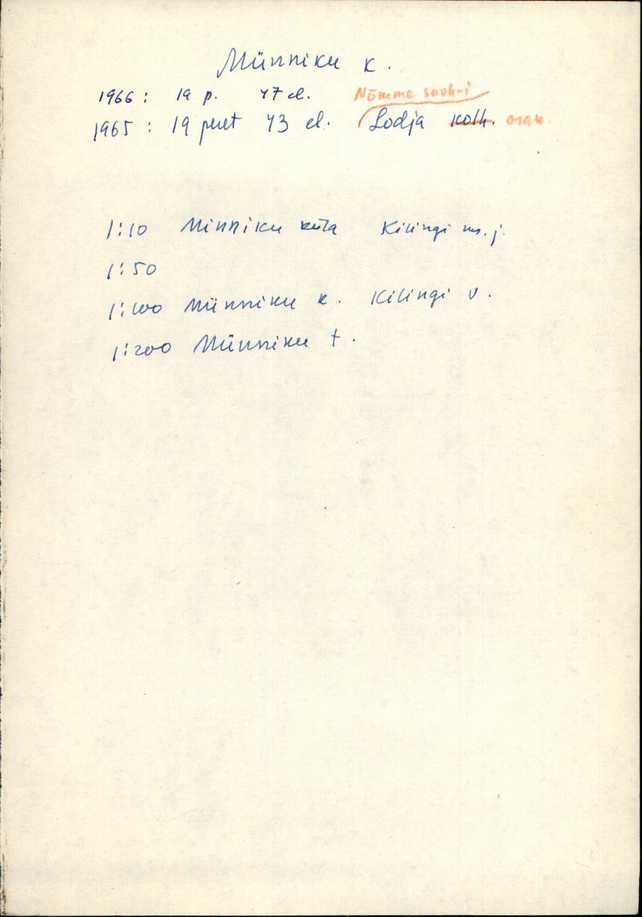 Münniku k.
1966: 19 p. 47 el. Nõmme sovh-i
1965: 19 peret 43 el. Lodja kolh. osak.
1:10 Minniku küla Kilingi ms. j.
1:50
1:100 Münniku k. Kilingi v.
1:200 Münniku t.